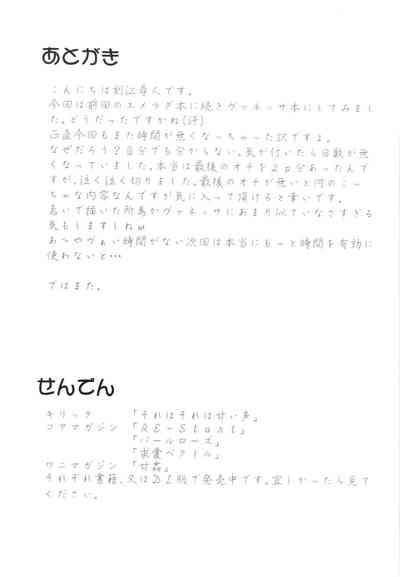 あとがき
こんにちは刻江尋人です。
今回は前回のエメラダ本に続きヴァネッサ本にしてみまし
た。どうだったですかね(汗)
正直今回もまた時間が無くなっちゃった訳ですよ。
なぜだろう?自分でも分からない。気が付いたら日数が無
くなっていました。本当は最後のオチを2p分あったんで
すが、泣く泣く切りました。最後のオチが無いと何のこっ
ちゃな内容なんですが気に入って頂けると幸いです。
急いで描いた所為かヴァネッサにあまり似ていなさすぎる
気もしますしねw
あ〜やヴぁい時間がない次回は本当にもっと時間を有効に
使わないと…
ではまた。
せんでん
キリック 「それはそれは甘い多」
コアマガジン 「RE-Start」
「パールローズ」
「求愛ベクトル」
ワニマガジン 「甘姦」
それぞれ書籍、又はDL版で発売中です。宜しかったら見て
ください。